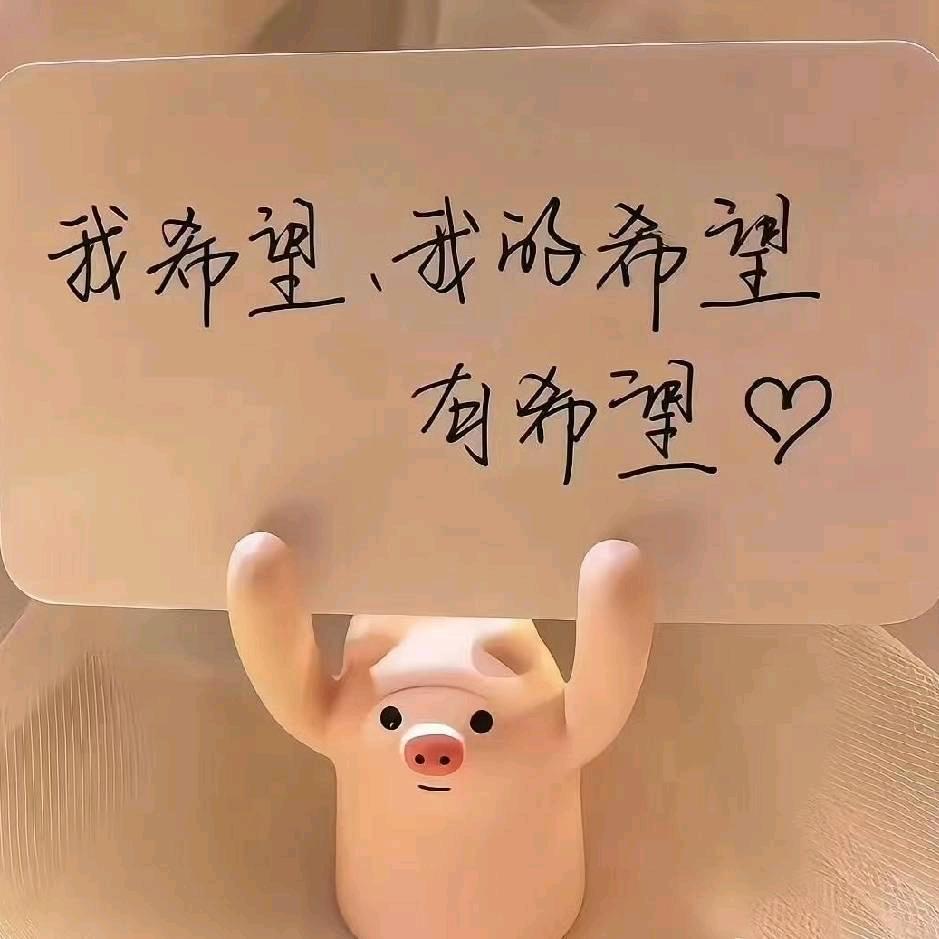 我希望、我的希望
有希望♡